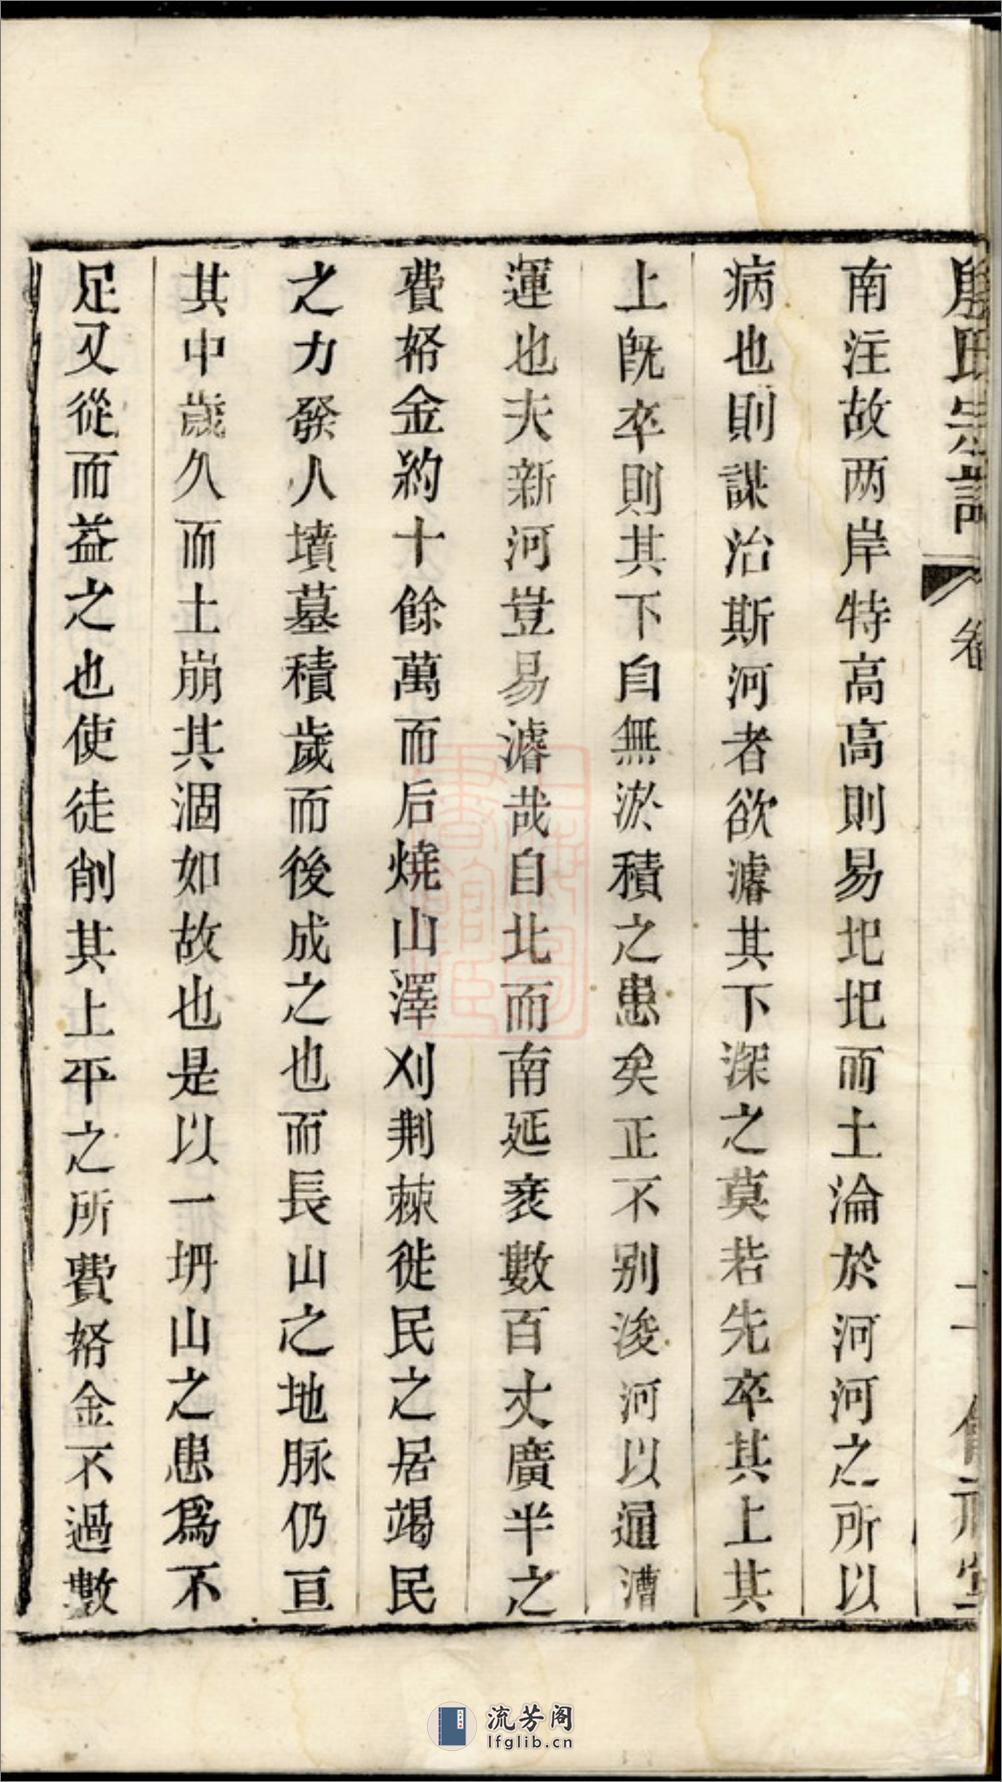 殷氏宗譜
卷
南注故两岸特高高則易圯圯而土淪於河河之所以
病也則謀治斯河者欲濬其下深之莫若先卒其上其
上旣卒則其下自無淤積之患矣正不别浚河以通漕
運也夫新河豈易濬哉自北而南延袤數百丈廣半之
費帑金約十餘萬而后燒山澤刈荆棘徙民之居竭民
之力發人墳墓積歲而後成之也而長山之地脉仍亘
其中歲久而土崩其涸如故也是以一坍山之患爲不
足又從而益之也使徒削其上平之所費帑金不過數
流芳阁
lfglib.cn